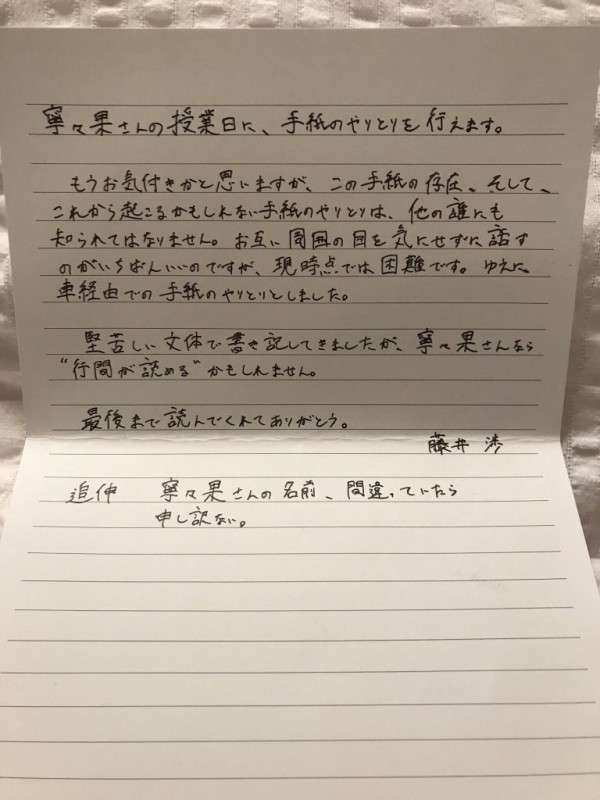 寧々果さんの授業日に、手紙のやりとりを行えます。
もうお気付きかと思いますが、この手紙の存在、そして、
これから起こるかもしれない手紙のやりとりは、他の誰にも
知られてはなりません。お互いに周囲の目を気にせずに話す
のがいちばんいいのですが、現時点では困難です。ゆえに
車経由での手紙のやりとりとしました。
堅苦しい文体で書き記してきましたが、寧々果さんなら
“行間が読める”かもしれません。
最後まで読んでくれてありがとう。
藤井 渉
追伸 寧々果さんの名前、間違っていたら
申し訳ない。